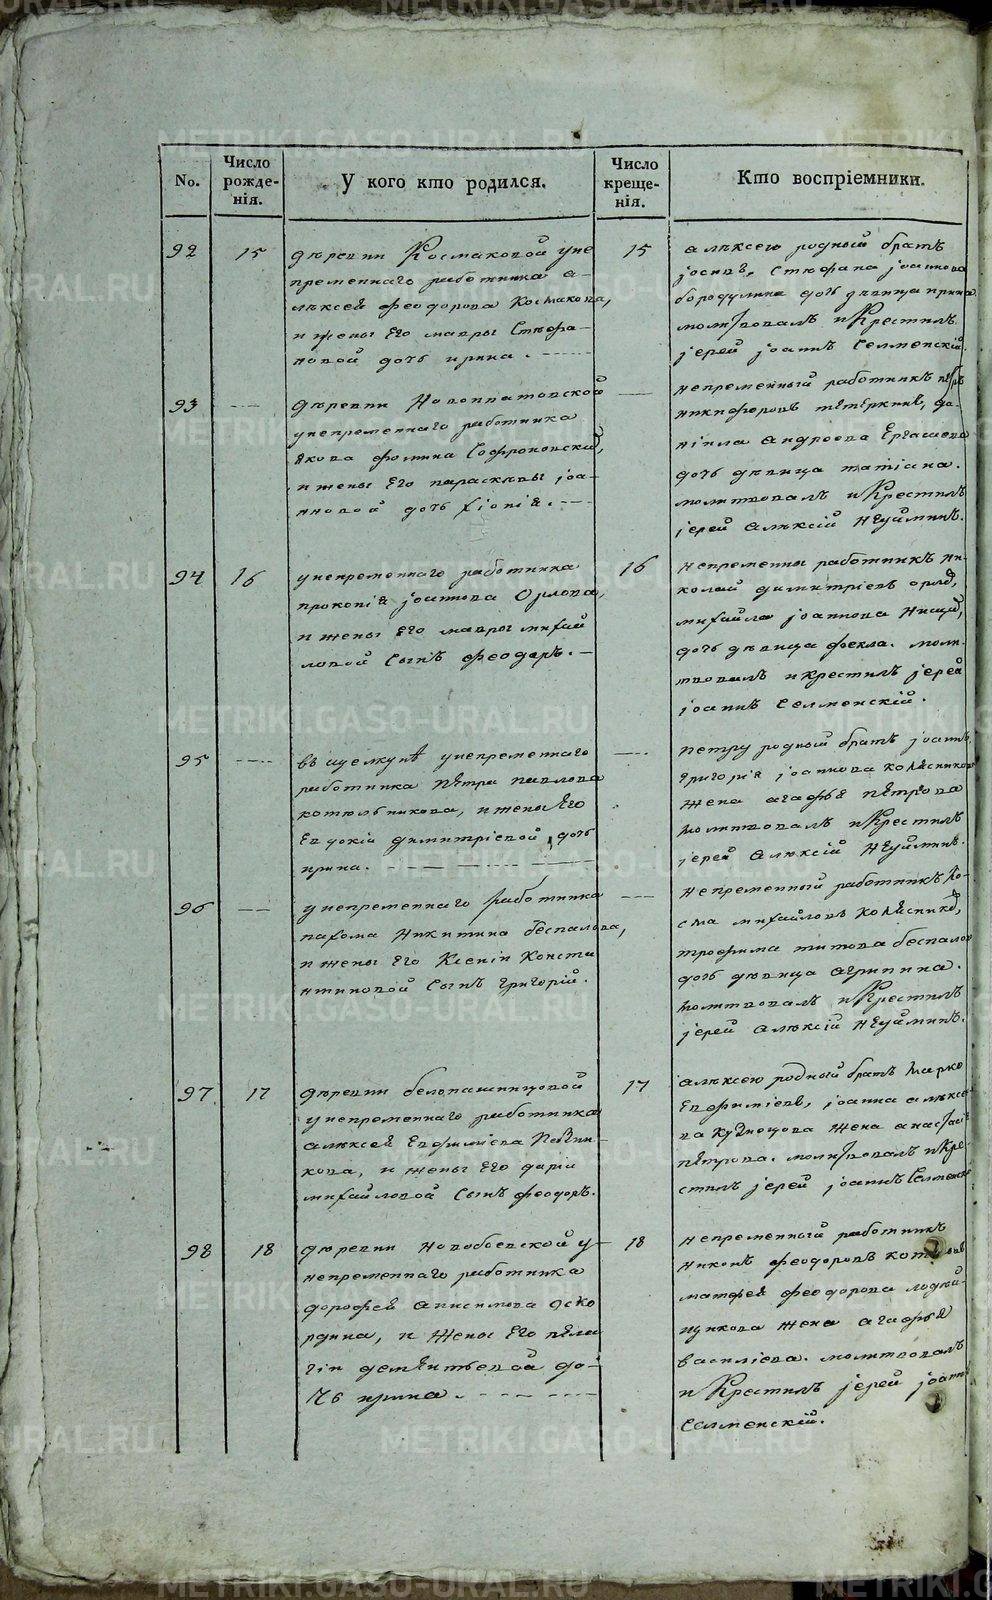 No.
Число рожде-нія.
У кого кто родился.
Число креще-нія.
Кто воспріемники.
92
15
деревни Космаковой уне
пременнаго работника а-
лѣксея феодорова Космакова,
и жены его мавры Стефа-
новой дочь ирина.
15
алѣксею родный братъ
іосифъ, Стефана іоаннова
бородулина дочь дѣвица ирина
молитвовалъ и Крестилъ
іерей іоаннъ Селменскій.
93
деревни Новоипатовской
унепременнаго работника
якова фомина Софроновскаго,
и жены его параскевы іоа-
нновой дочь хіонія.
непременный работникъ петръ
никифоровъ
андреева
дочь дѣвица татіана.
молитвовалъ и Крестилъ
іерей Алѣксій Неуйминъ.
94
16
унепременнаго работника
прокопія іоаннова Орлова,
и жены его мавры михай
ловой Сынъ феодоръ.
16
непременны работникъ ни-
колай димитріевъ орловъ,
михайла іоаннова
дочь дѣвица фекла. моли-
твовалъ и крестилъ іерей
іоаннъ Селменскій.
95
въ щелкунѣ унепременнаго
работника петра павлова
котельникова, и жены его
Евдокіи димитріевой дочь
ирина.
петру родный братъ іоаннъ,
григорія іоаннова колясникова
жена агафья петрова
молитвовалъ и Крестилъ
іерей Алѣксій Неуйминъ.
96
унепременнаго работника
пахома Никитина беспалова,
и жены его Ксеніи Конста
нтиновой Сынъ григорій.
непременный работникъ ко-
сма михайловъ колясниковъ,
трофима титова беспалова
дочь дѣвица агрипина.
молитвовалъ и Крестилъ
іерей Алѣксій Неуйминъ.
97
17
деревни белопашинцовой
унепременнаго работника
алѣксея Евфиміева
и жены его даріи
михайловой Сынъ феодоръ.
17
алѣксею родный братъ Марко
Евфиміевъ, іоанна алѣксее
ва Кузнецова жена анастасія
петрова. молитвовалъ и Кре-
стилъ іерей іоаннъ Селменскій
98
18
деревни новобоевской у-
непременнаго работника
дорофея анисимова Оско
рдина, и жены его пела
гіи дементьевой до-
чь ирина.
18
непременный работникъ
никонъ феодоровъ
матфея феодорова
жена агафья
василіева. молитвовалъ
и Крестилъ іерей іоаннъ
Селменскій.
METRIKI.GASO-URAL.RU